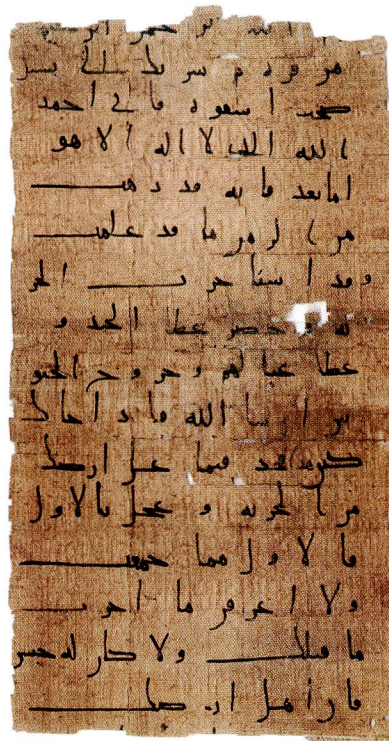 بسم الله الرحمن الرحيم
من قرة بن شريك الى بسيل
صحب اشقوه فاني احمد
الله الذي لا اله الا هو
اما بعد فانه قد ذهب
من الزمن ما قد علمت
وقد استاخرت الجز
ية حضر عطا الجند و
عطا عيالهم وخروج الجيو
ش ان شا الله فاذا جاك
كتبي هذا فخذ فيما على ارضك
من الجزية وعجل بالاول
فالاول مما جمعت
ولا اعرفن ما اخرت
ما قبلك ولا كان له حبس
فان اهل ارضك